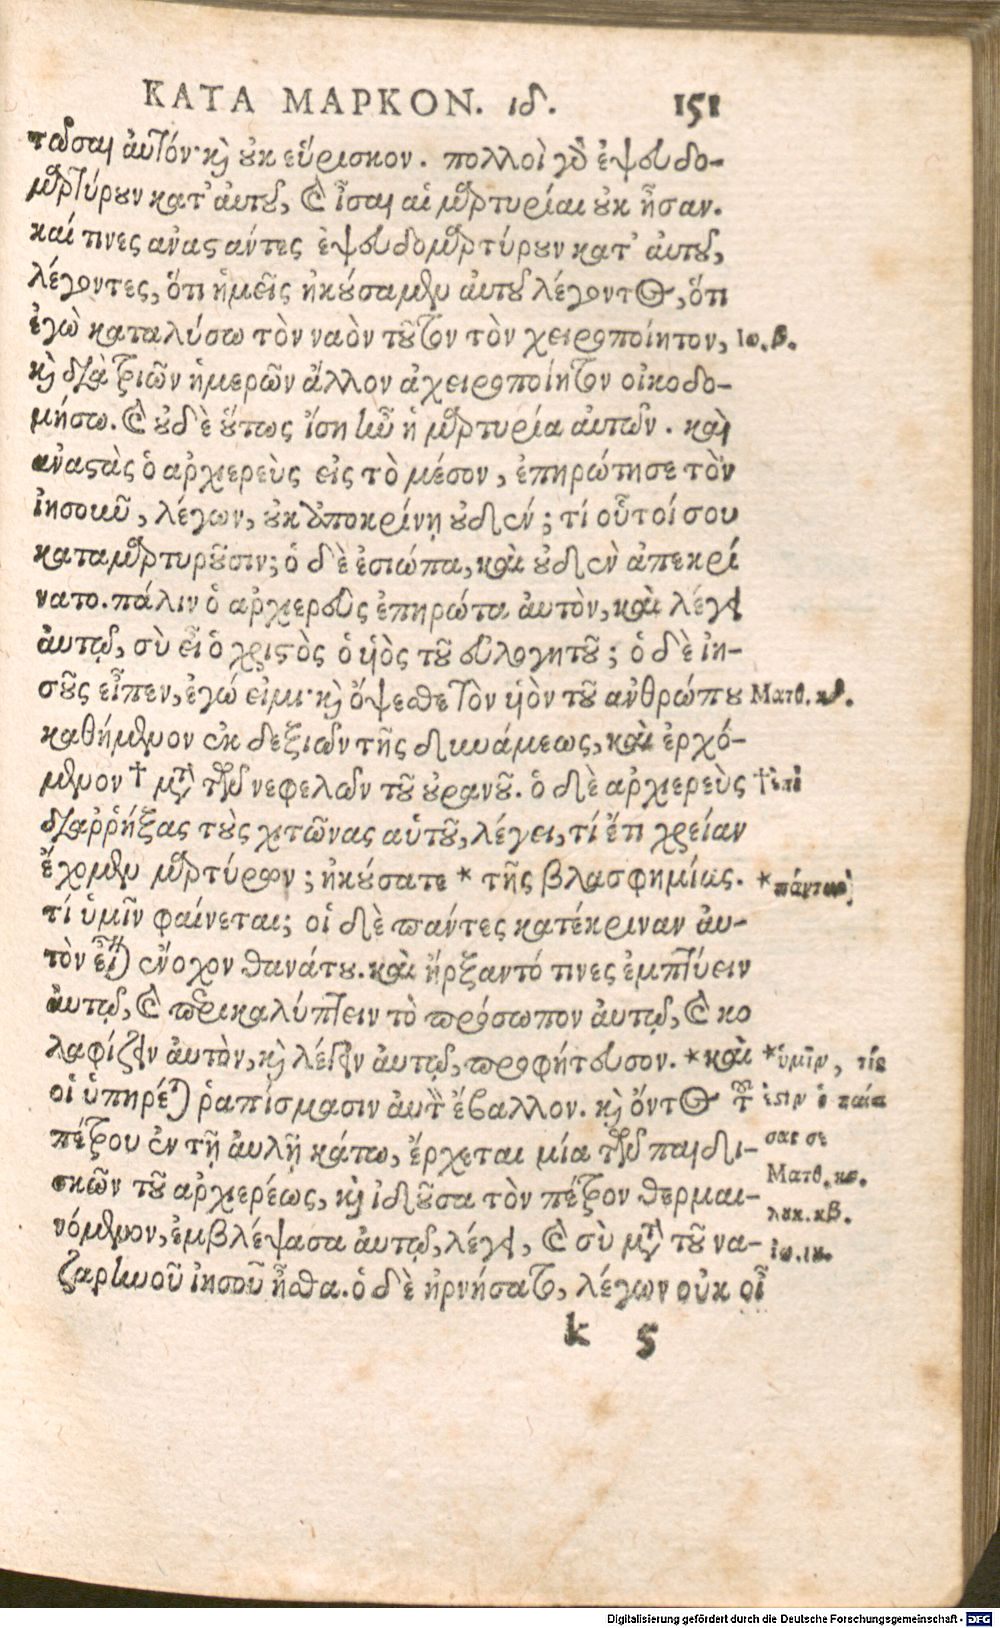 ΚΑΤΑ ΜΑΡΚΟΝ. ιδ. 151
τῶσαι αὐτόν· καὶ οὐκ εὕρισκον. πολλοὶ γὰρ ἐψευδο-
μαρτύρουν κατ' αὐτοῦ, καὶ ἶσαι αἱ μαρτυρίαι οὐκ ἦσαν.
καί τινες ἀναστάντες ἐψευδομαρτύρουν κατ' αὐτοῦ,
λέγοντες, ὅτι ἡμεῖς ἠκούσαμεν αὐτοῦ λέγοντος, ὅτι
ἐγὼ καταλύσω τὸν ναὸν τοῦτον τὸν χειροποίητον, Ιω. β.
καὶ διὰ τριῶν ἡμερῶν ἄλλον ἀχειροποίητον οἰκοδο-
μήσω. καὶ οὐδὲ οὕτως ἴση ἦν ἡ μαρτυρία αὐτῶν. καὶ
ἀναστὰς ὁ ἀρχιερεὺς εἰς τὸ μέσον, ἐπηρώτησε τὸν
ἰησοῦν, λέγων, οὐκ ἀποκρίνῃ οὐδέν; τί οὗτοί σου
καταμαρτυροῦσιν; ὁ δὲ ἐσιώπα, καὶ οὐδὲν ἀπεκρί
νατο. πάλιν ὁ ἀρχιερεὺς ἐπηρώτα αὐτὸν, καὶ λέγει
αὐτῷ, σὺ εἶ ὁ χριστὸς ὁ υἱὸς τοῦ εὐλογητοῦ; ὁ δὲ ἰη-
σοῦς εἶπεν, ἐγώ εἰμι· καὶ ὄψεσθε τὸν υἱὸν τοῦ ἀνθρώπου Ματθ. κδ.
καθήμενον ἐκ δεξιῶν τῆς δυνάμεως, καὶ ἐρχό-
μενον † μετὰ τῶν νεφελῶν τοῦ οὐρανοῦ. ὁ δὲ ἀρχιερεὺς † ἐπὶ
διαῤῥήξας τοὺς χιτῶνας αὑτοῦ, λέγει, τί ἔτι χρείαν
ἔχομεν μαρτύρων; ἠκούσατε * τῆς βλασφημίας. * πάντως
τί ὑμῖν φαίνεται; οἱ δὲ πάντες κατέκριναν αὐ-
τὸν εἶναι ἔνοχον θανάτου. καὶ ἤρξαντό τινες ἐμπτύειν
αὐτῷ, καὶ περικαλύπτειν τὸ πρόσωπον αὐτῷ, καὶ κο
λαφίζειν αὐτὸν, καὶ λέγειν αὐτῷ, προφήτευσον. * καὶ * ἡμῖν, τίς
οἱ ὑπηρέται ῥαπίσμασιν αὐτὸν ἔβαλλον. καὶ ὄντος τοῦ ἐστιν ὁ παίσας σε
πέτρου ἐν τῇ αὐλῇ κάτω, ἔρχεται μία τῶν παιδι-
σκῶν τοῦ ἀρχιερέως, καὶ ἰδοῦσα τὸν πέτρον θερμαι- Ματθ. κϛ.
νόμενον, ἐμβλέψασα αὐτῷ, λέγει, καὶ σὺ μετὰ τοῦ να- λουκ. κβ.
ζαρηνοῦ ἰησοῦ ἦσθα. ὁ δὲ ἠρνήσατο, λέγων οὐκ οἶ Ιω. ιη.
k 5
Digitalisierung gefördert durch die Deutsche Forschungsgemeinschaft - DFG